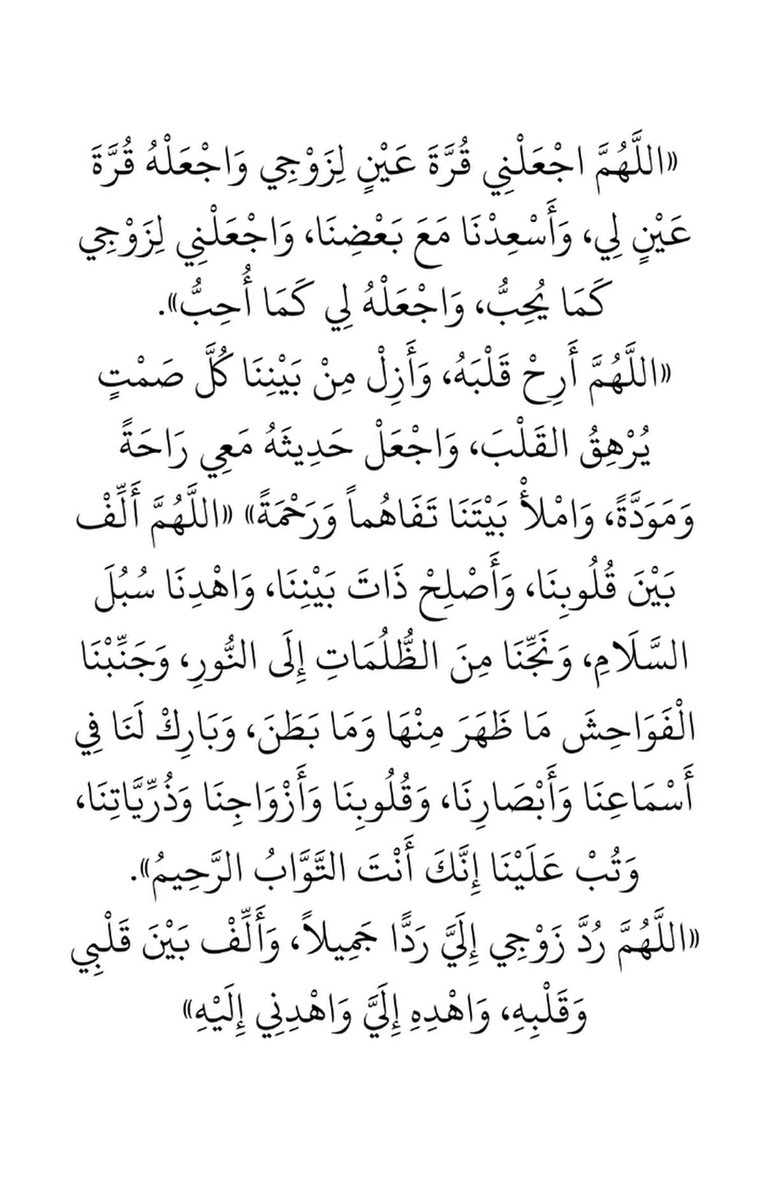 «اللَّهُمَّ اجْعَلْنِي قُرَّةَ عَيْنٍ لِزَوْجِي وَاجْعَلْهُ قُرَّةَ
عَيْنٍ لِي، وَأَسْعِدْنَا مَعَ بَعْضِنَا، وَاجْعَلْنِي لِزَوْجِي
كَمَا يُحِبُّ، وَاجْعَلْهُ لِي كَمَا أُحِبُّ».
«اللَّهُمَّ أَرِحْ قَلْبَهُ، وَأَزِلْ مِنْ بَيْنِنَا كُلَّ صَمْتٍ
يُرْهِقُ القَلْبَ، وَاجْعَلْ حَدِيثَهُ مَعِي رَاحَةً
وَمَوَدَّةً، وَامْلأْ بَيْتَنَا تَفَاهُماً وَرَحْمَةً» «اللَّهُمَّ أَلِّفْ
بَيْنَ قُلُوبِنَا، وَأَصْلِحْ ذَاتَ بَيْنِنَا، وَاهْدِنَا سُبُلَ
السَّلَامِ، وَنَجِّنَا مِنَ الظُّلُمَاتِ إِلَى النُّورِ، وَجَنِّبْنَا
الْفَوَاحِشَ مَا ظَهَرَ مِنْهَا وَمَا بَطَنَ، وَبَارِكْ لَنَا فِي
أَسْمَاعِنَا وَأَبْصَارِنَا، وَقُلُوبِنَا وَأَزْوَاجِنَا وَذُرِّيَّاتِنَا،
وَتُبْ عَلَيْنَا إِنَّكَ أَنْتَ التَّوَّابُ الرَّحِيمُ».
«اللَّهُمَّ رُدَّ زَوْجِي إِلَيَّ رَدًّا جَمِيلاً، وَأَلِّفْ بَيْنَ قَلْبِي
وَقَلْبِهِ، وَاهْدِهِ إِلَيَّ وَاهْدِنِي إِلَيْهِ»